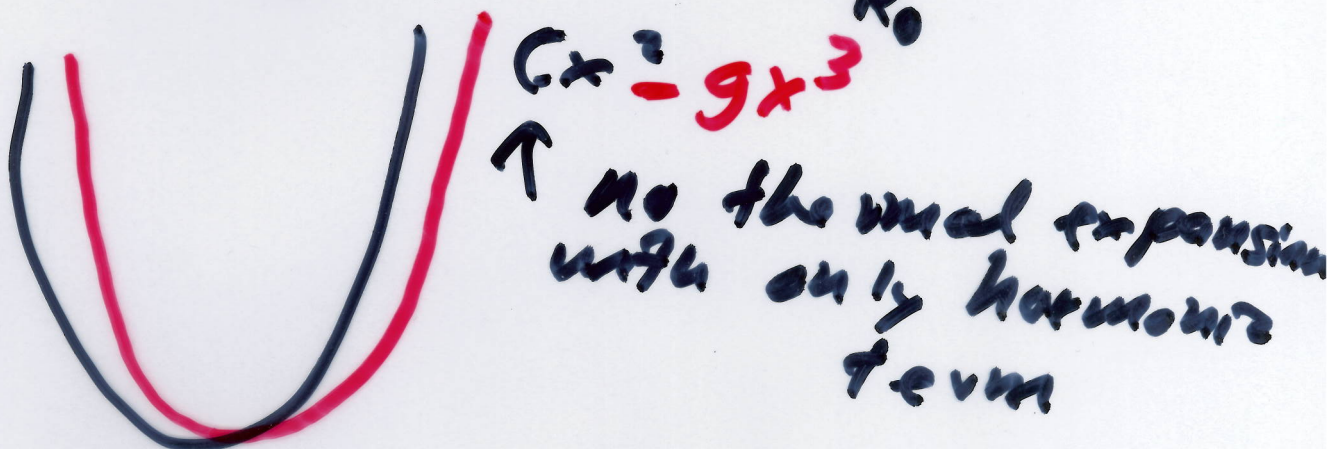 R₀
Cx² - gx³
↑ no thermal expansion
with only harmonic
term